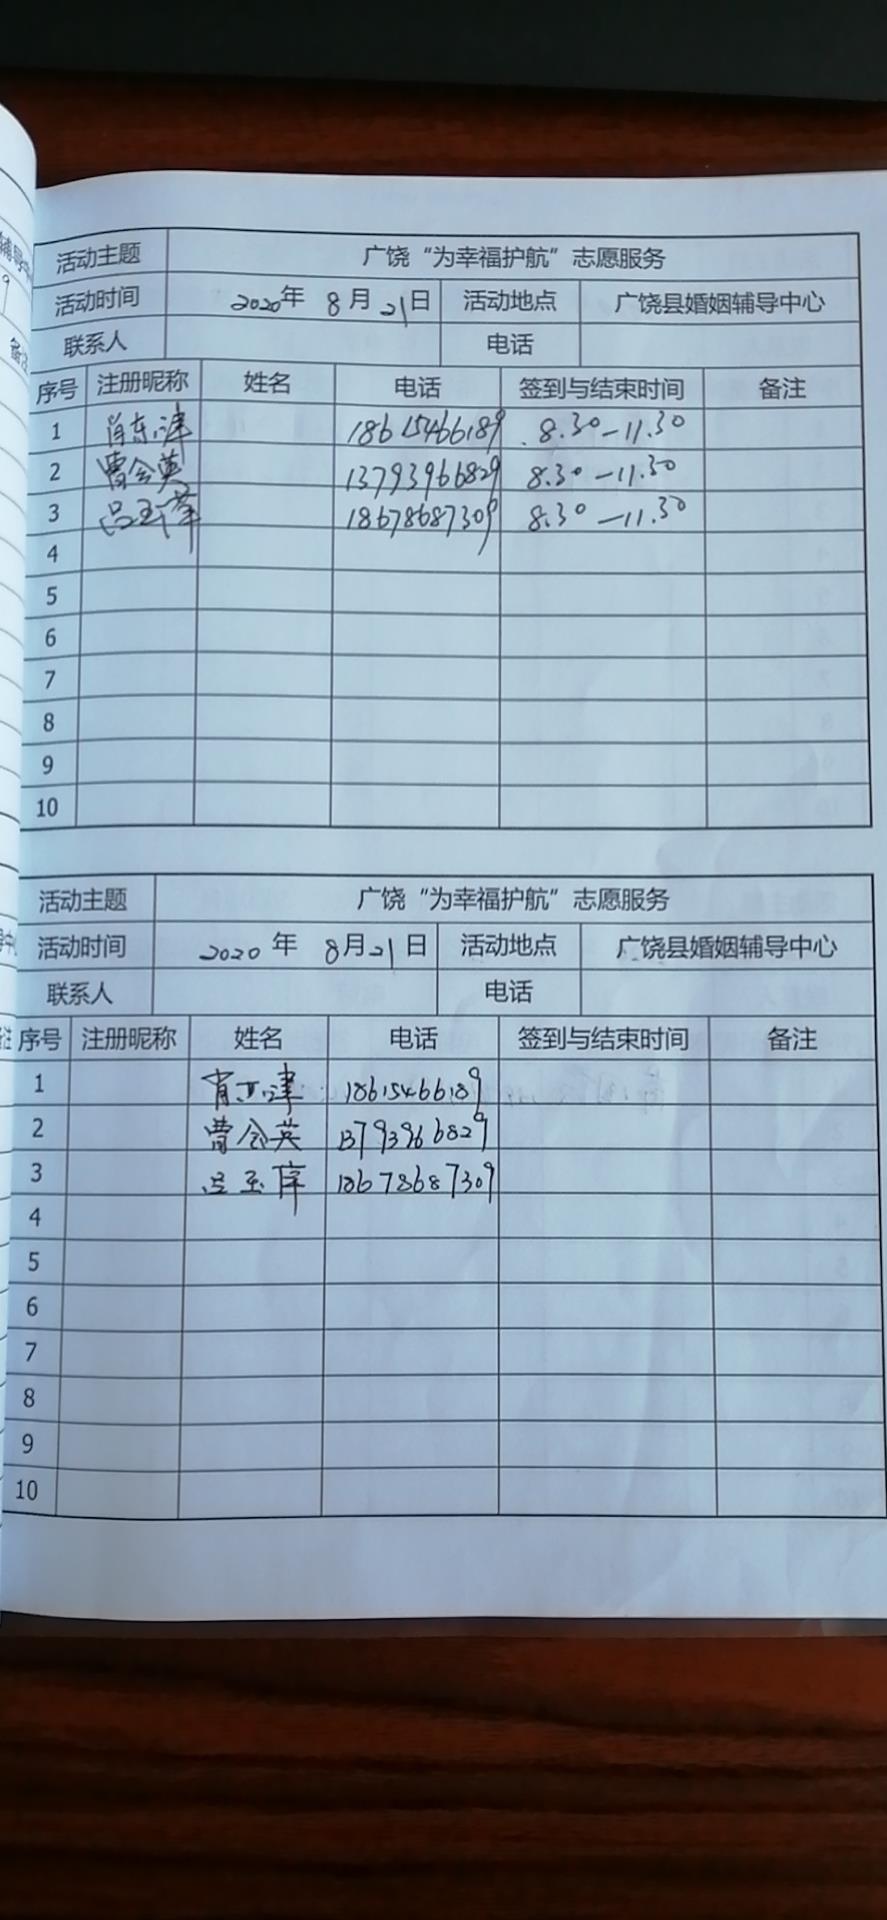 活动主题 广饶“为幸福护航”志愿服务
活动时间 2020年 8月21日 活动地点 广饶县婚姻辅导中心
联系人 电话
序号 注册昵称 姓名 电话 签到与结束时间 备注
1 肖东津 18615466189 8.30—11.30
2 曹会英 13793966829 8.30—11.30
3 吕玉 18678687309 8.30—11.30
4
5
6
7
8
9
10
活动主题 广饶“为幸福护航”志愿服务
活动时间 2020年 8月21日 活动地点 广饶县婚姻辅导中心
联系人 电话
序号 注册昵称 姓名 电话 签到与结束时间 备注
1 肖东津 18615466189
2 曹会英 13793966829
3 吕玉 18678687309
4
5
6
7
8
9
10